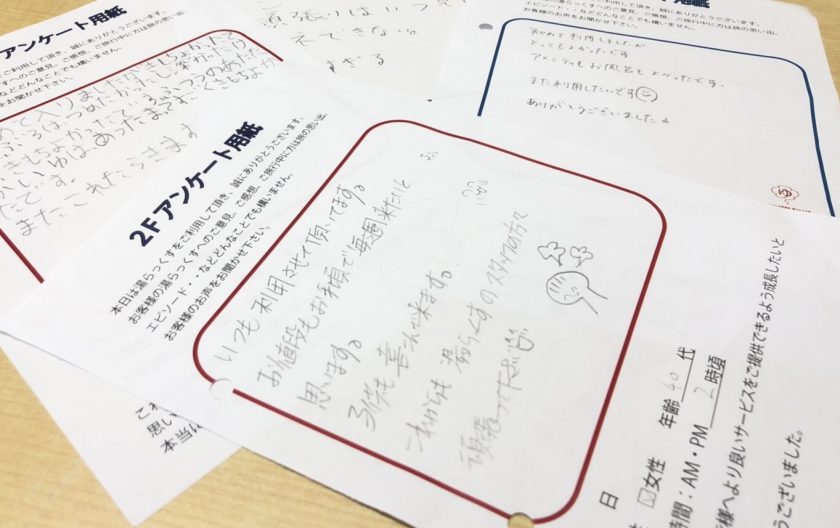 アンケート用紙
めて入りましたがきもちよかたで
ぶろはつめたかたし
きもちよかたです。
かいゆはあったまってすごくきもちよか
たです。
またこれたらきます
頑張りはいつ
えできない。
すぎる
ンケート用紙
エピソード・・などどんなことでも構いません。
お客様のお声をお聞かせ下さい。
初めて利用しましたが
とってもよかったです
アメニティもお風呂もよかったです。
また利用したいです
ありがとうございました
2Fアンケート用紙
本日は湯らっくすをご利用して頂き、誠にありがとうございます。
お客様の湯らっくすへのご意見、ご感想、ご旅行中に方は旅の思い出、
エピソード・・などどんなことでも構いません。
お客様のお声をお聞かせ下さい。
いつも利用させて頂いてます。
お値段もお手頃で毎週来たいと
思います。
子供も喜こんで来ます。
これからも湯らっくすのスタッフの方々
頑張って下さい
日
☑女性 年齢 40 代
時間：AM・PM 2 時頃
様へより良いサービスをご提供できるよう成長したいと
うございました。
これ
思い
本当に